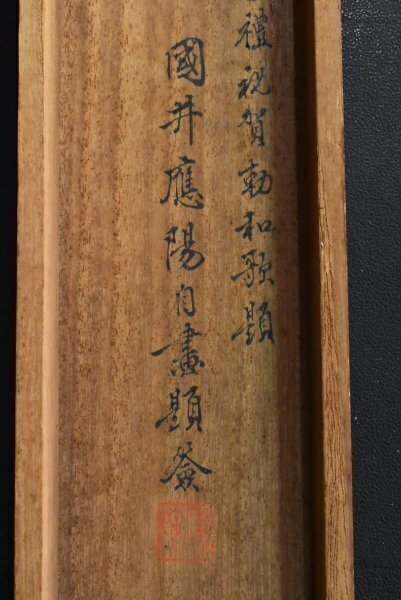 禮祝賀勅和歌題
國井應陽自畫題簽